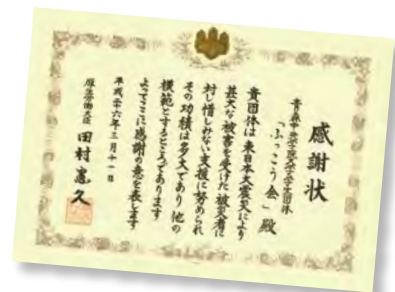 感謝状
青森中央学院大学学生団体
「ふっこう会」殿
貴団体は東日本大震災により
甚大な被害を受けた被災者に
対し惜しみない支援に努められ
その功績は多大であり他の
模範とするところであります
よってここに感謝の意を表します
平成二十六年三月十一日
厚生労働大臣 田村憲久